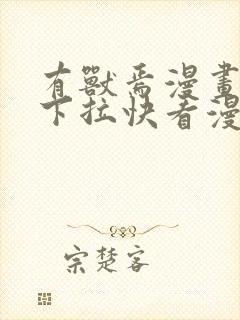 有獸焉漫畫
下拉快看漫
宗楚客